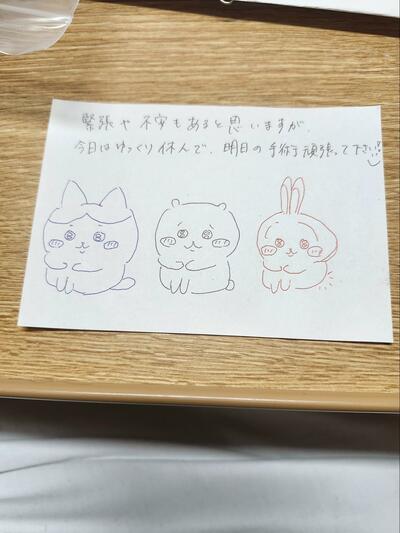 緊張や不安もあると思いますが、
今日はゆっくり休んで、明日の手術頑張って下さい!!